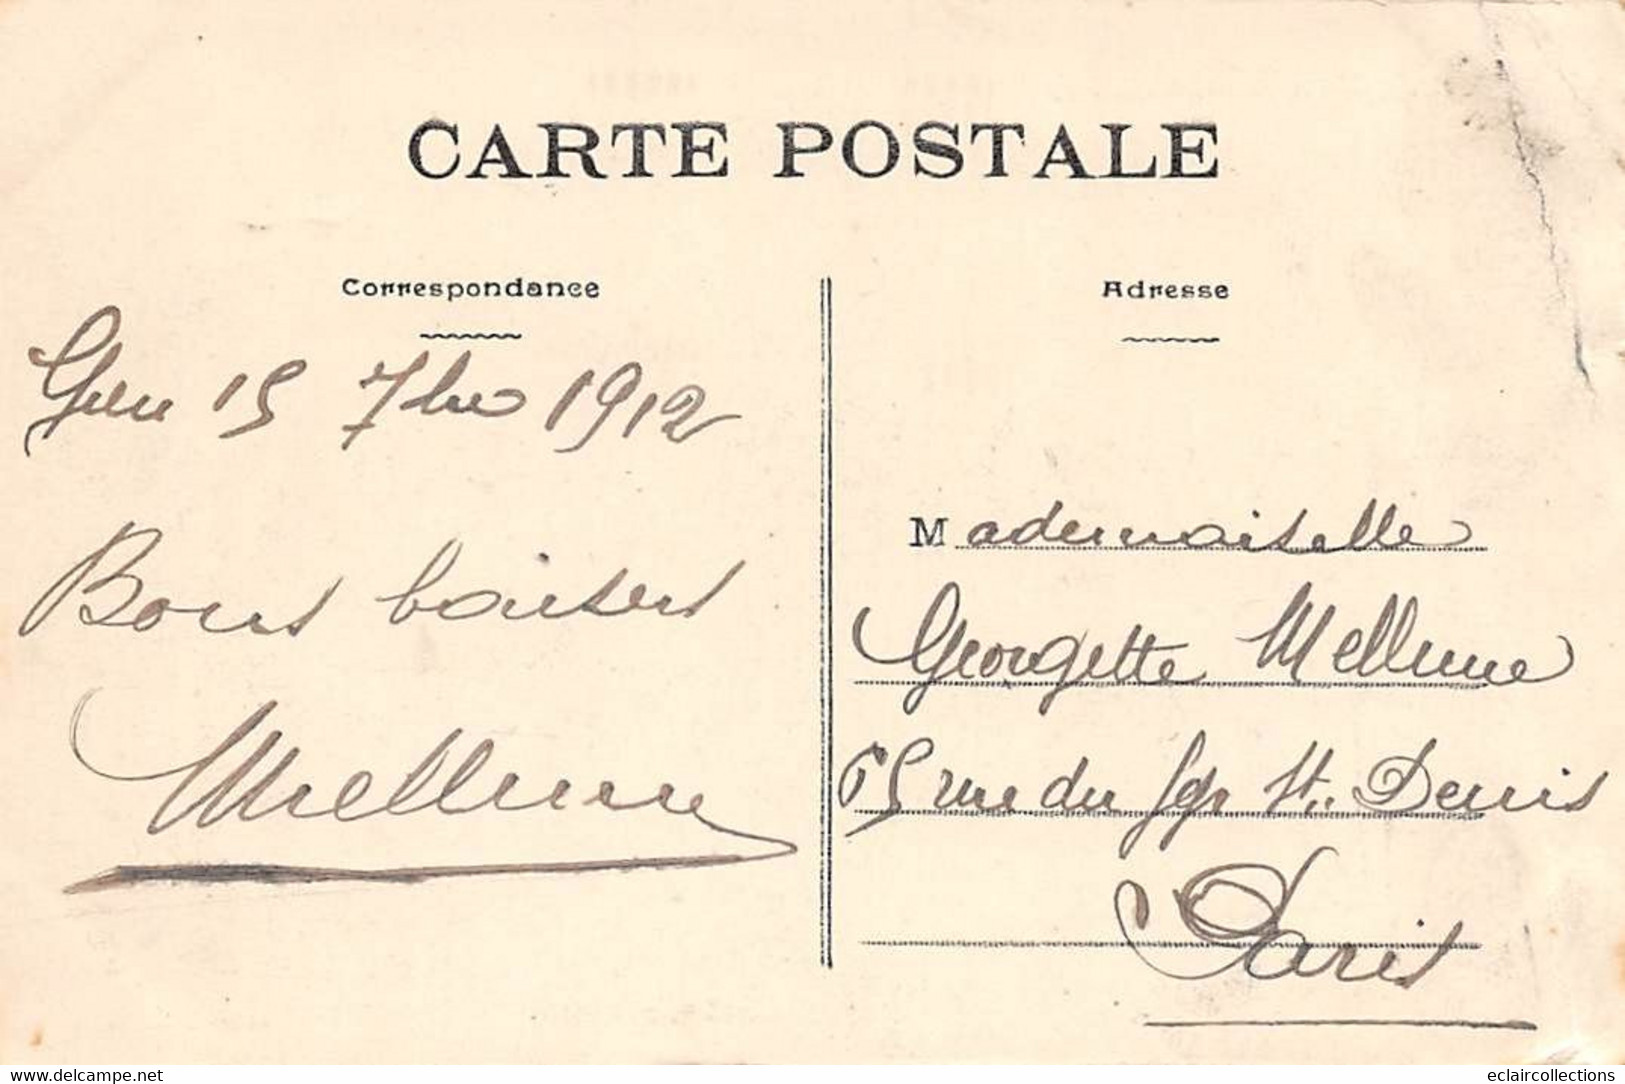 CARTE POSTALE
Correspondance
Adresse
Gien 15 7bre 1912
Bons baisers
Mellerune
Mademoiselle
Georgette Mellerune
65 rue du fg St. Denis
Paris
Delcampe.net
eclaircollections